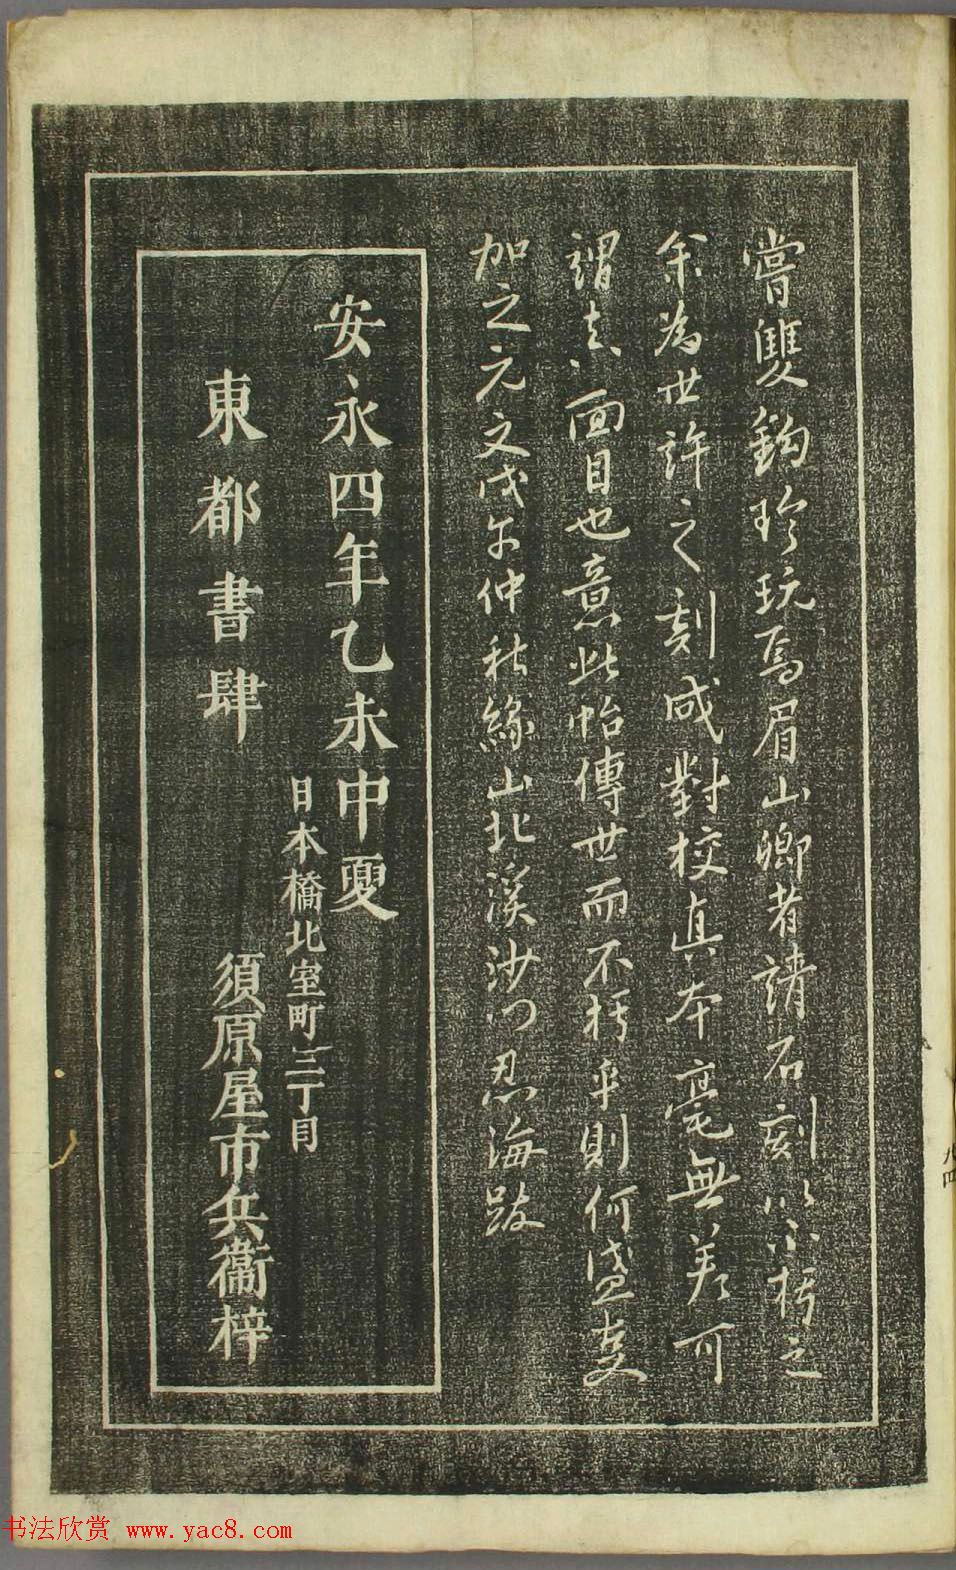 嘗雙鉤珍玩焉眉山卿者請石刻以不朽之
余為世許之刻成對校真本毫無差可
謂真面目也意此帖傳世而不朽乎則何盛更
加之元文戊午仲秋緣山北溪沙门忍海跋
安永四年乙未中夏
日本橋北室町三丁目
東都書肆 須原屋市兵衞梓
九四
书法欣赏 www.yac8.com